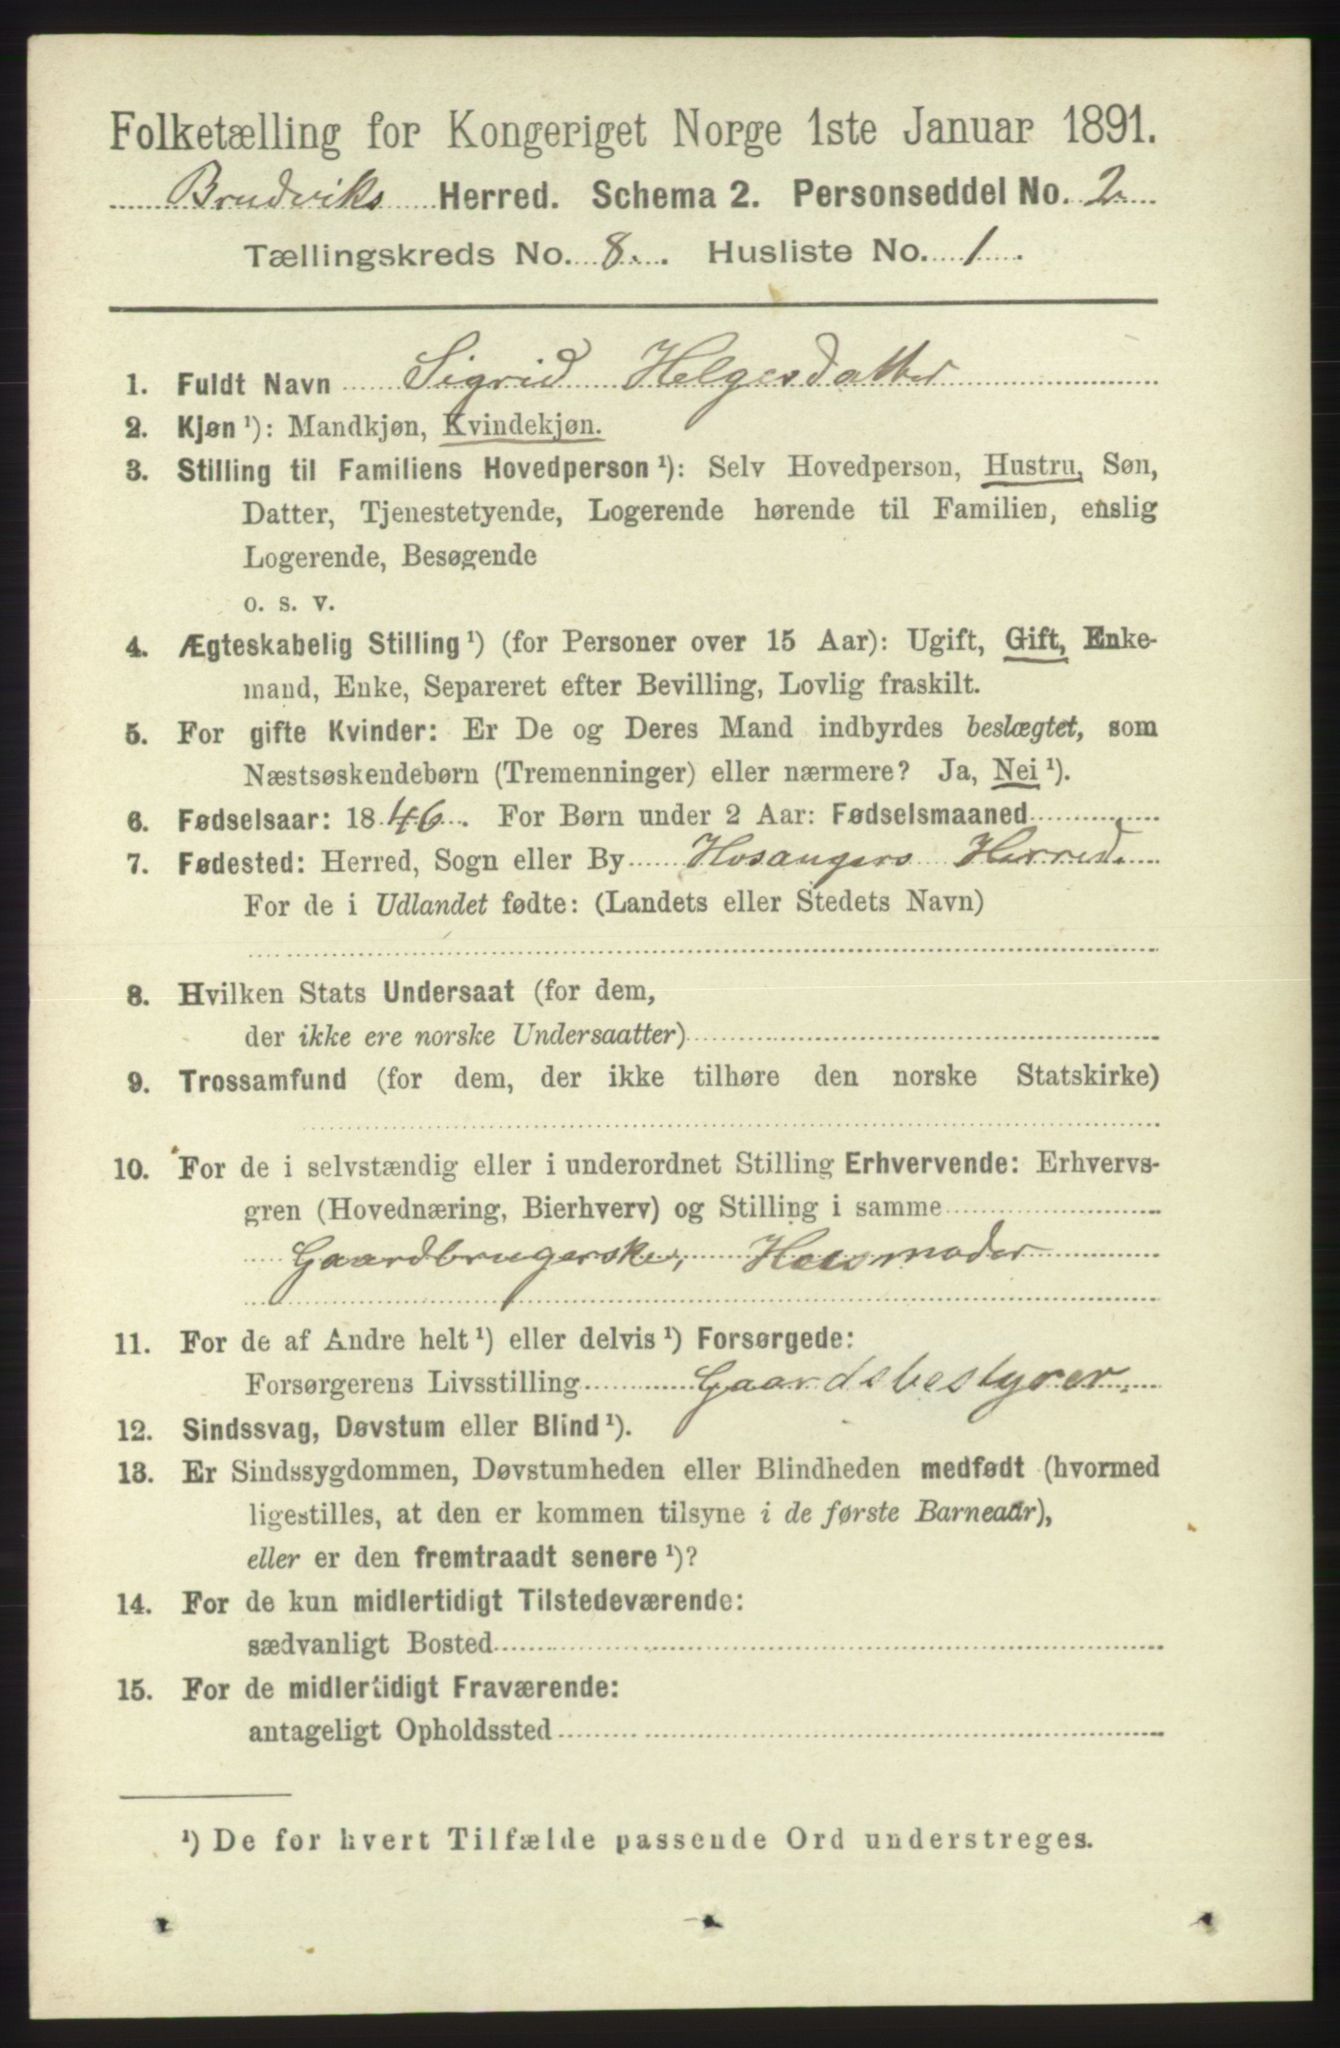 Folketælling for Kongeriget Norge 1ste Januar 1891.
Brudviks Herred. Schema 2. Personseddel No. 2.
Tællingskreds No. 8. Husliste No. 1
1. Fuldt Navn Sigrid Helgesdatter
2. Kjøn ¹): Mandkjøn, Kvindekjøn.
3. Stilling til Familiens Hovedperson ¹): Selv Hovedperson, Hustru, Søn,
Datter, Tjenestetyende, Logerende hørende til Familien, enslig
Logerende, Besøgende
o. s. v.
4. Ægteskabelig Stilling ¹) (for Personer over 15 Aar): Ugift, Gift, Enke-
mand, Enke, Separeret efter Bevilling, Lovlig fraskilt.
5. For gifte Kvinder: Er De og Deres Mand indbyrdes beslægtet, som
Næstsøskendebørn (Tremenninger) eller nærmere? Ja, Nei ¹).
6. Fødselsaar: 1846. For Børn under 2 Aar: Fødselsmaaned
7. Fødested: Herred, Sogn eller By Hosangers Herred.
For de i Udlandet fødte: (Landets eller Stedets Navn)
8. Hvilken Stats Undersaat (for dem,
der ikke ere norske Undersaatter)
9. Trossamfund (for dem, der ikke tilhøre den norske Statskirke)
10. For de i selvstændig eller i underordnet Stilling Erhvervende: Erhvervs-
gren (Hovednæring, Bierhverv) og Stilling i samme
Gaardbrugerske, Husmoder
11. For de af Andre helt ¹) eller delvis ¹) Forsørgede:
Forsørgerens Livsstilling Gaardsbestyrer.
12. Sindssvag, Døvstum eller Blind ¹).
13. Er Sindssygdommen, Døvstumheden eller Blindheden medfødt (hvormed
ligestilles, at den er kommen tilsyne i de første Barneaar),
eller er den fremtraadt senere ¹)?
14. For de kun midlertidigt Tilstedeværende:
sædvanligt Bosted
15. For de midlertidigt Fraværende:
antageligt Opholdssted
¹) De for hvert Tilfælde passende Ord understreges.